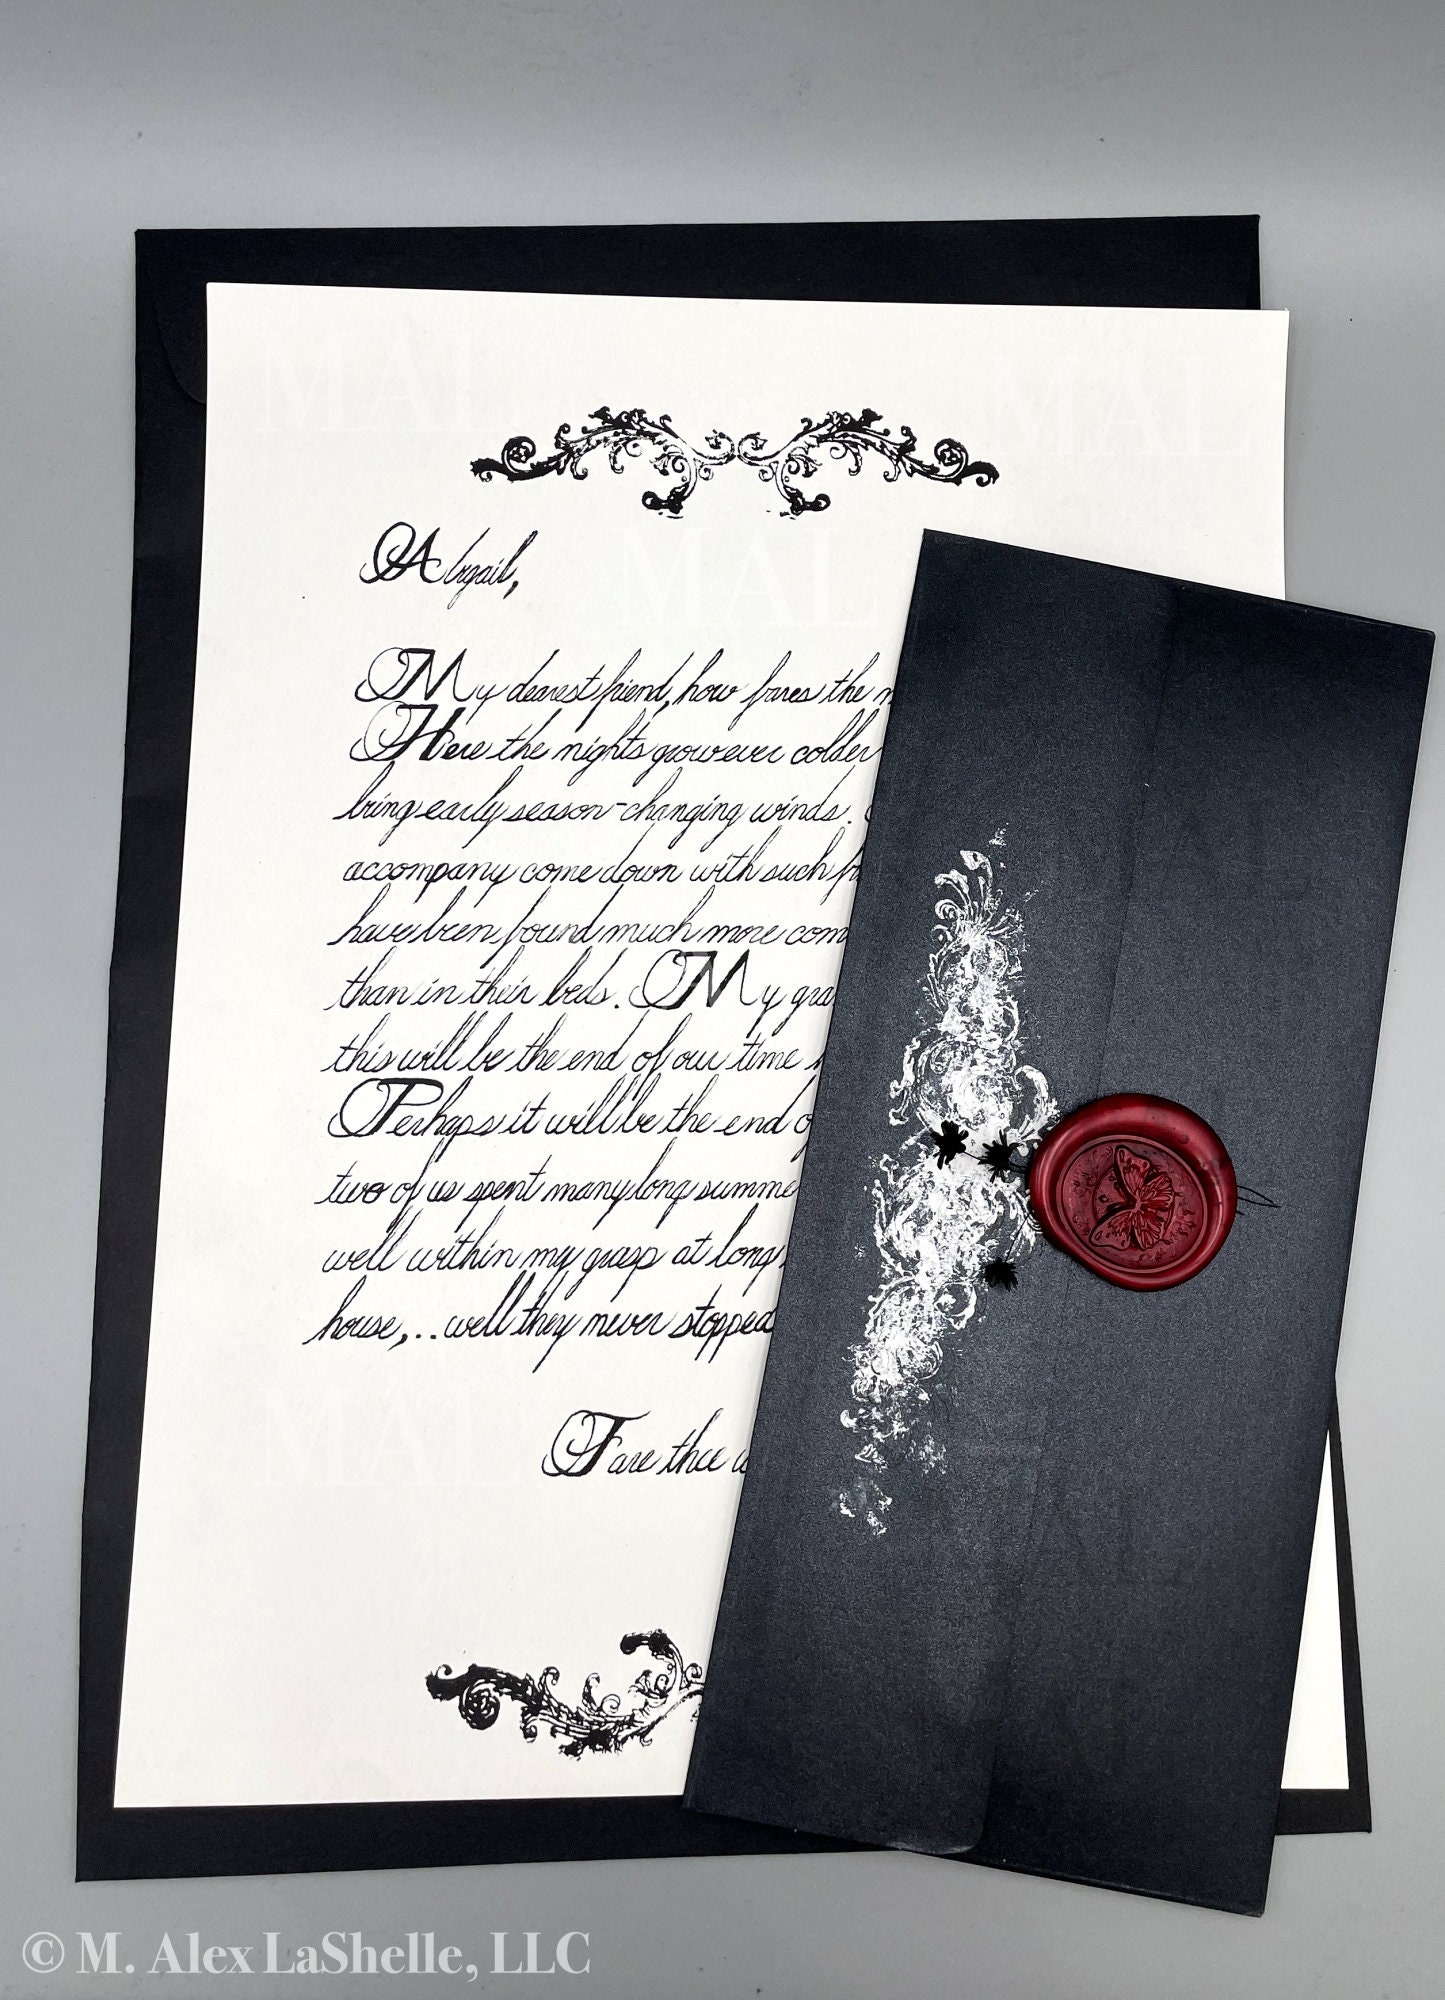 MAL
MAL
Abigail,
MAL
My dearest friend, how fares the
Here the nights grow ever colder
bring early season-changing winds.
accompany come down with such
have been found much more com
than in their beds. My gra
this will be the end of our time
Perhaps it will be the end o
two of us spent many long summe
well within my grasp at long
house,... well they never stopped
MAL
Fare thee w
© M. Alex LaShelle, LLC